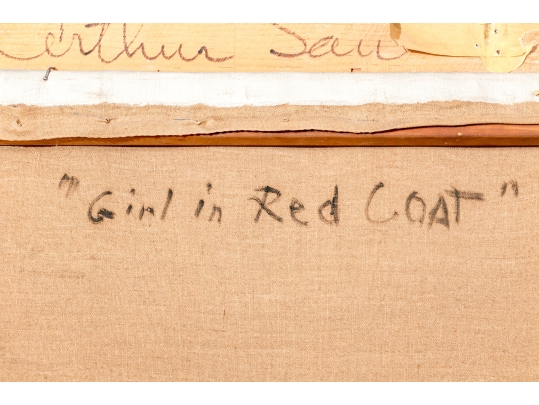 Arthur Sau
"Girl in Red COAT"